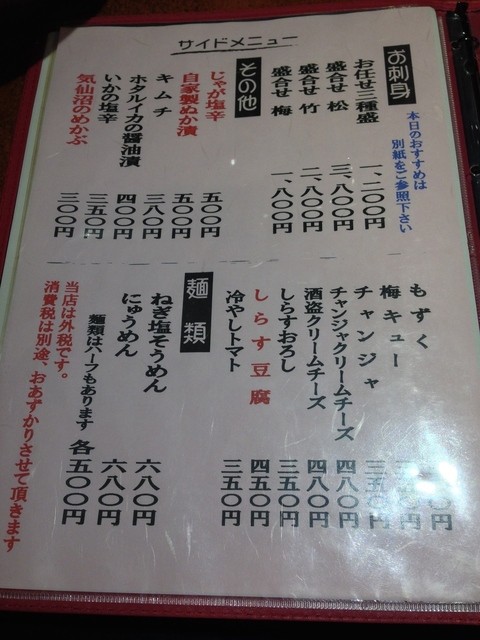 サイドメニュー
お刺身
本日のおすすめは
別紙をご参照下さい
お任せ三種盛 一、二〇〇円
盛合せ 松 三、八〇〇円
盛合せ 竹 二、八〇〇円
盛合せ 梅 一、八〇〇円
その他
じゃが塩辛 五〇〇円
自家製ぬか漬 五〇〇円
キムチ 三八〇円
ホタルイカの醤油漬 四〇〇円
いかの塩辛 三五〇円
気仙沼のめかぶ 三〇〇円
もずく 円
梅キュー 円
チャンジャ 三五〇円
チャンジャクリームチーズ 四八〇円
酒盗クリームチーズ 四八〇円
しらすおろし 三五〇円
しらす豆腐 四五〇円
冷やしトマト 三五〇円
麺類
ねぎ塩そうめん 六八〇円
にゅうめん 六八〇円
麺類はハーフもあります 各五〇〇円
当店は外税です。
消費税は別途、おあずかりさせて頂きます